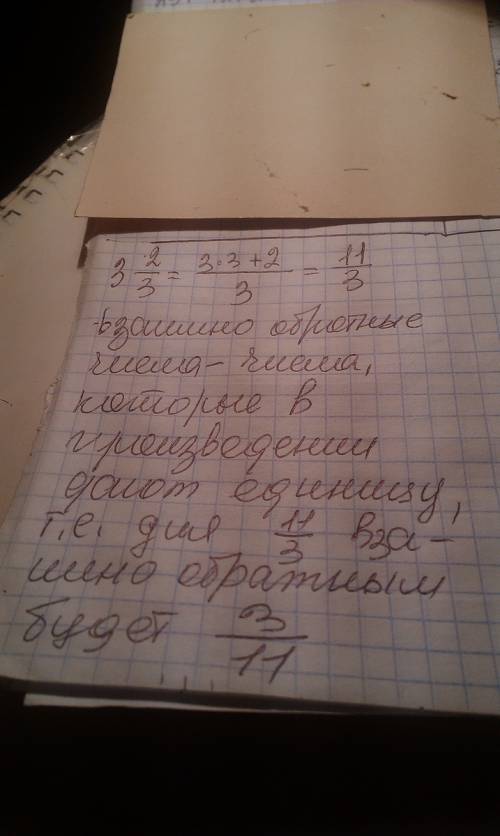 3 2/3 = (3·3+2)/3 = 11/3
взаимно обратные
числа – числа,
которые в
произведении
дают единицу,
т.е. для 11/3 вза-
имно обратным
будет 3/11